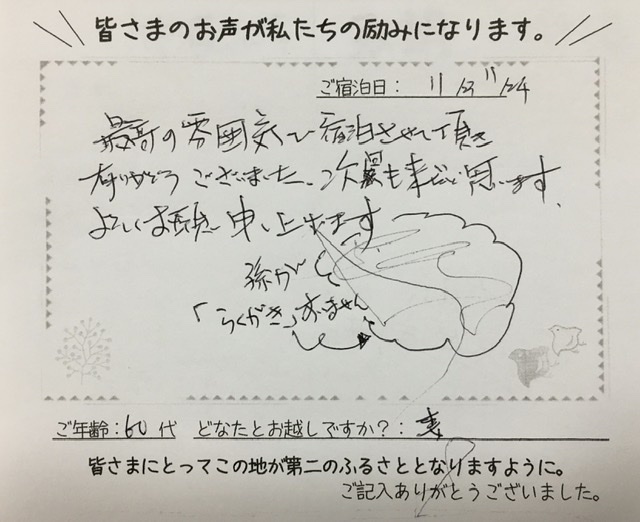 皆さまのお声が私たちの励みになります。
ご宿泊日: 11/23 11/24
最高の雰囲気で宿泊させて頂き
ありがとうございました。次回も来たいと思います。
よろしくお願い申し上げます
孫が
「らくがき」すいません
ご年齢:60代 どなたとお越しですか?: 妻
皆さまにとってこの地が第二のふるさととなりますように。
ご記入ありがとうございました。